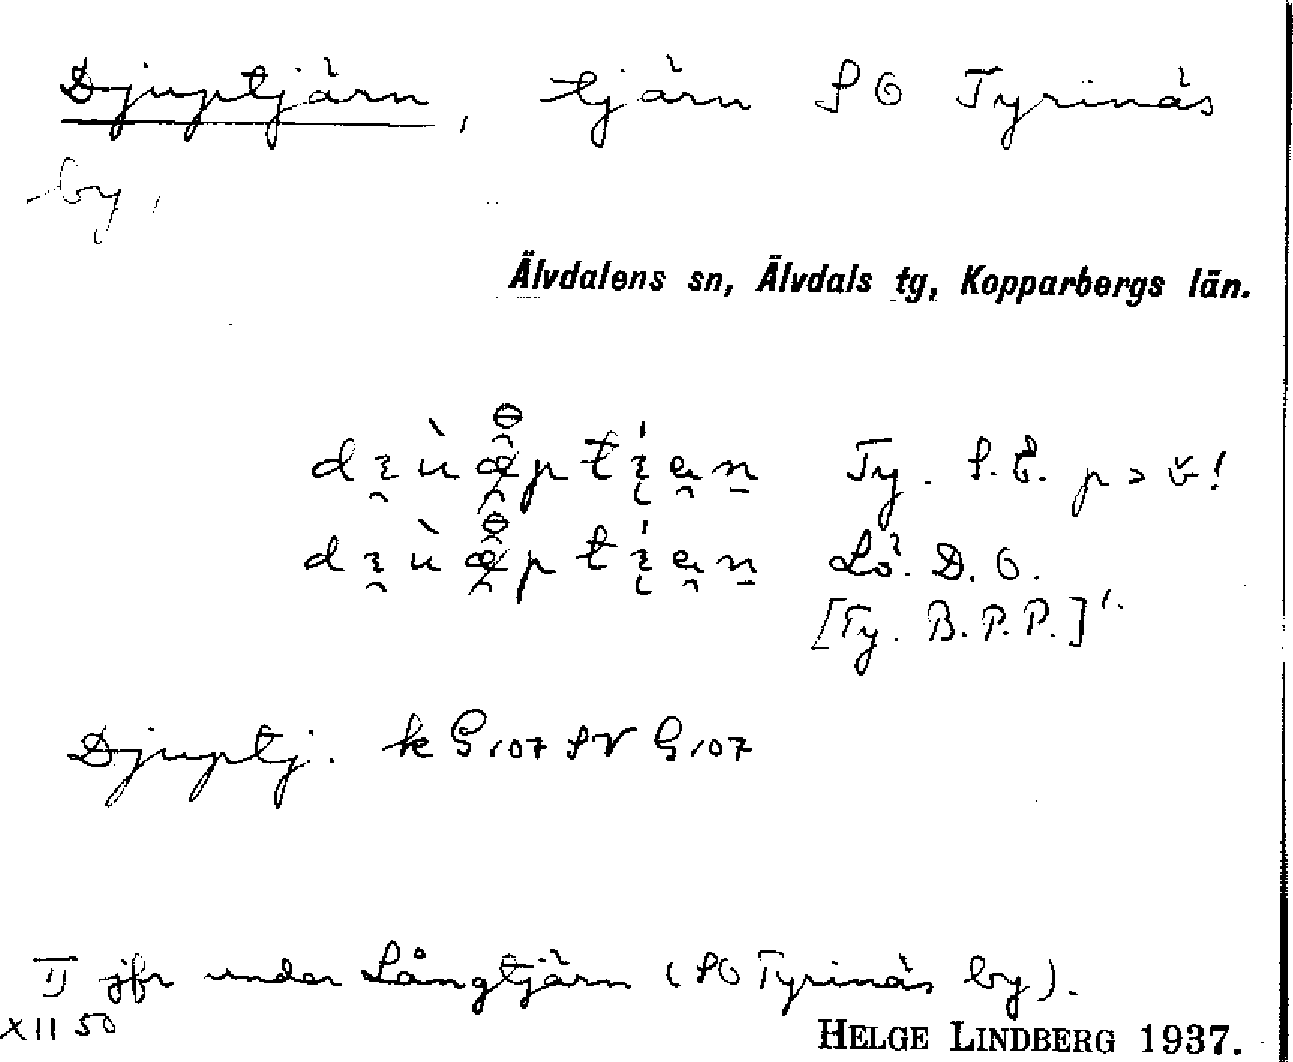 Djuptjärn, tjärn SO Tyrinäs
by,
Älvdalens sn, Älvdals tg, Kopparbergs län.
Ty. S.E.
Lö. D. O.
[Ty. B.P.P.]
Djuptj. k G107 SV G107
II jfr under Långtjärn (SO Tyrinäs by).
XII 50
HELGE LINDBERG 1937.